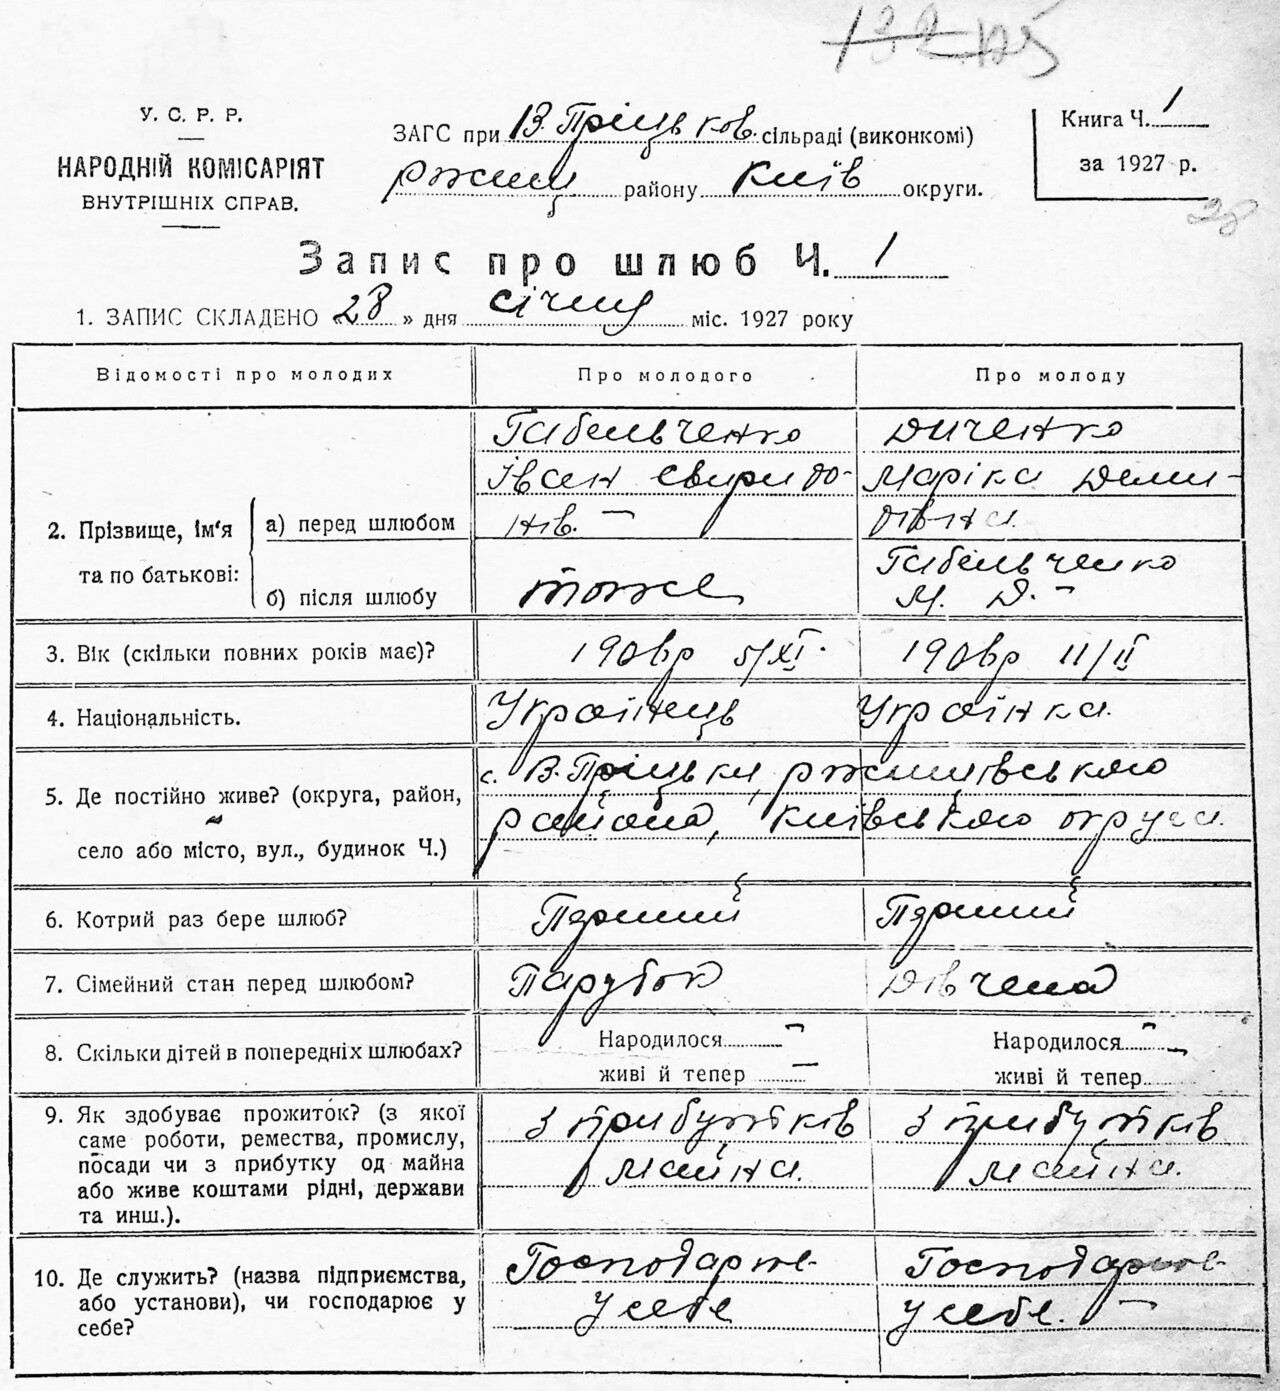 132 125
У. С. Р. Р.
НАРОДНІЙ КОМІСАРІЯТ
ВНУТРІШНІХ СПРАВ.
ЗАГС при В. Пріцьков. сільраді (виконкомі)
ржищ району Київ округи.
Книга Ч. 1
за 1927 р.
28
Запис про шлюб Ч. 1
1. ЗАПИС СКЛАДЕНО «28» дня січня міс. 1927 року
Відомості про молодих
Про молодого
Про молоду
2. Прізвище, ім'я та по батькові:
а) перед шлюбом
Габельченко
Іван Свиридо-
нів. –
Диченко
Маріка Деми-
дівна.
б) після шлюбу
тоже
Габельченко
М. Д. –
3. Вік (скільки повних років має)?
190вр 5/XI.
190вр 11/II
4. Національність.
Українець
Українка.
5. Де постійно живе? (округа, район,
село або місто, вул., будинок Ч.)
с. В. Пріцьки, ржищівського
района, київського округа.
6. Котрий раз бере шлюб?
Перший
Перший
7. Сімейний стан перед шлюбом?
Парубок
Дівчена
8. Скільки дітей в попередніх шлюбах?
Народилося –
живі й тепер –
Народилося –
живі й тепер
9. Як здобуває прожиток? (з якої
саме роботи, ремества, промислу,
посади чи з прибутку од майна
або живе коштами рідні, держави
та инш.).
З прибутків
майна.
З прибутків
майна.
10. Де служить? (назва підприємства,
або установи), чи господарює у
себе?
Господарює
у себе
Господарює
у себе. –